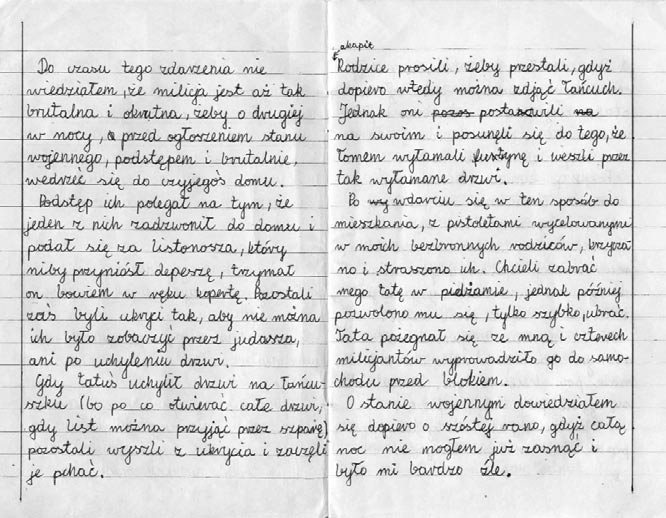 Do czasu tego zdarzenia nie
wiedziałem, że milicja jest aż tak
brutalna i okrutna, żeby o drugiej
w nocy, przed ogłoszeniem stanu
wojennego, podstępem i brutalnie,
wedrzeć się do czyjegoś domu.
Podstęp ich polegał na tym, że
jeden z nich zadzwonił do domu i
podał się za listonosza, który
niby przyniósł depeszę, trzymał
on bowiem w ręku kopertę. Pozostali
zaś byli ukryci tak, aby nie można
ich było zobaczyć przez judasza,
ani po uchyleniu drzwi.
Gdy tatuś uchylił drzwi na łańcu-
szku (bo po co otwierać całe drzwi,
gdy list można przyjąć przez szparę)
pozostali wyszli z ukrycia i zaczęli
je pchać.
akapit
Rodzice prosili, żeby przestali, gdyż
dopiero wtedy można zdjąć łańcuch.
Jednak oni pozos postawili na
na swoim i posunęli się do tego, że
łomem wyłamali futrynę i weszli przez
tak wyłamane drzwi.
Po wy wdarciu się w ten sposób do
mieszkania, z pistoletami wycelowanymi
w moich bezbronnych rodziców, krzycza-
no i straszono ich. Chcieli zabrać
mego tatę w pidżamie, jednak później
pozwolono mu się, tylko szybko, ubrać.
Tata pożegnał się ze mną i czterech
milicjantów wyprowadziło go do samo-
chodu przed blokiem.
O stanie wojennym dowiedziałem
się dopiero o szóstej rano, gdyż całą
noc nie mogłem już zasnąć i
było mi bardzo źle.